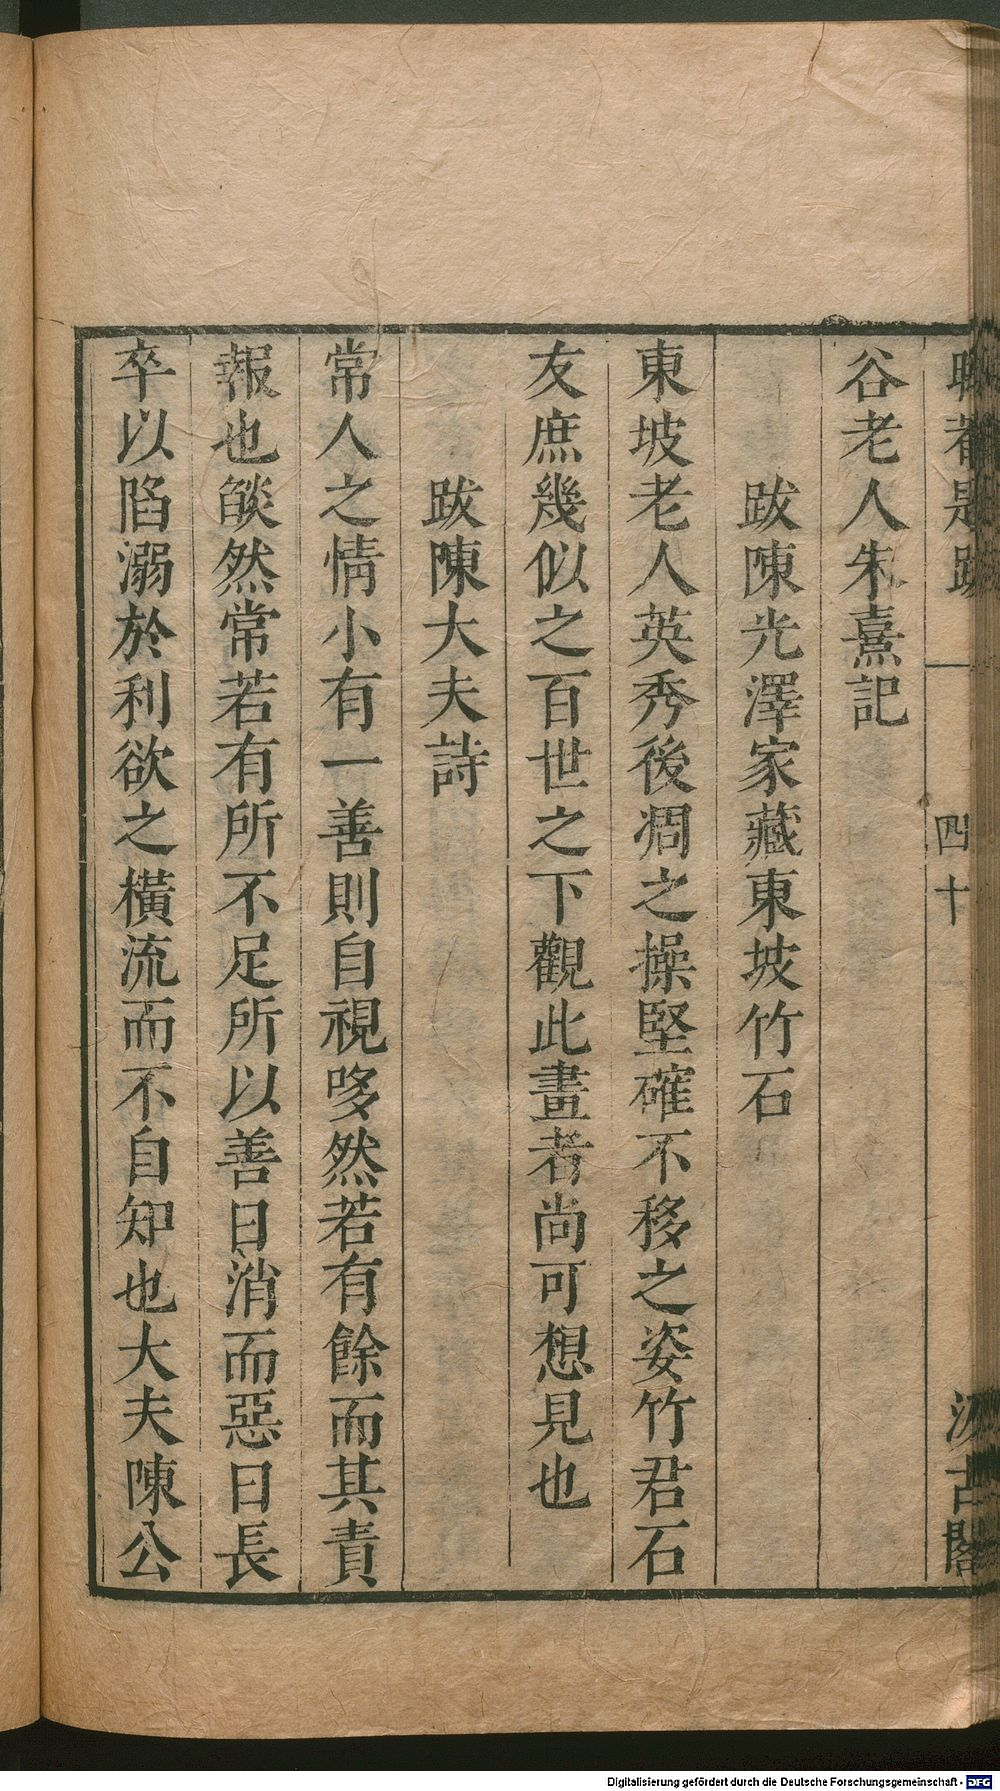 晦菴題跋 四十 汲古閣
谷老人朱熹記
跋陳光澤家藏東坡竹石
東坡老人英秀後凋之操堅確不移之姿竹君石
友庶幾似之百世之下觀此畫者尚可想見也
跋陳大夫詩
常人之情小有一善則自視哆然若有餘而其責
報也餤然常若有所不足所以善日消而惡日長
卒以陷溺於利欲之橫流而不自知也大夫陳公
Digitalisierung gefördert durch die Deutsche Forschungsgemeinschaft - DFG